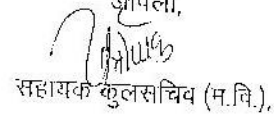 आपला,
सहायक कुलसचिव (म.वि.),